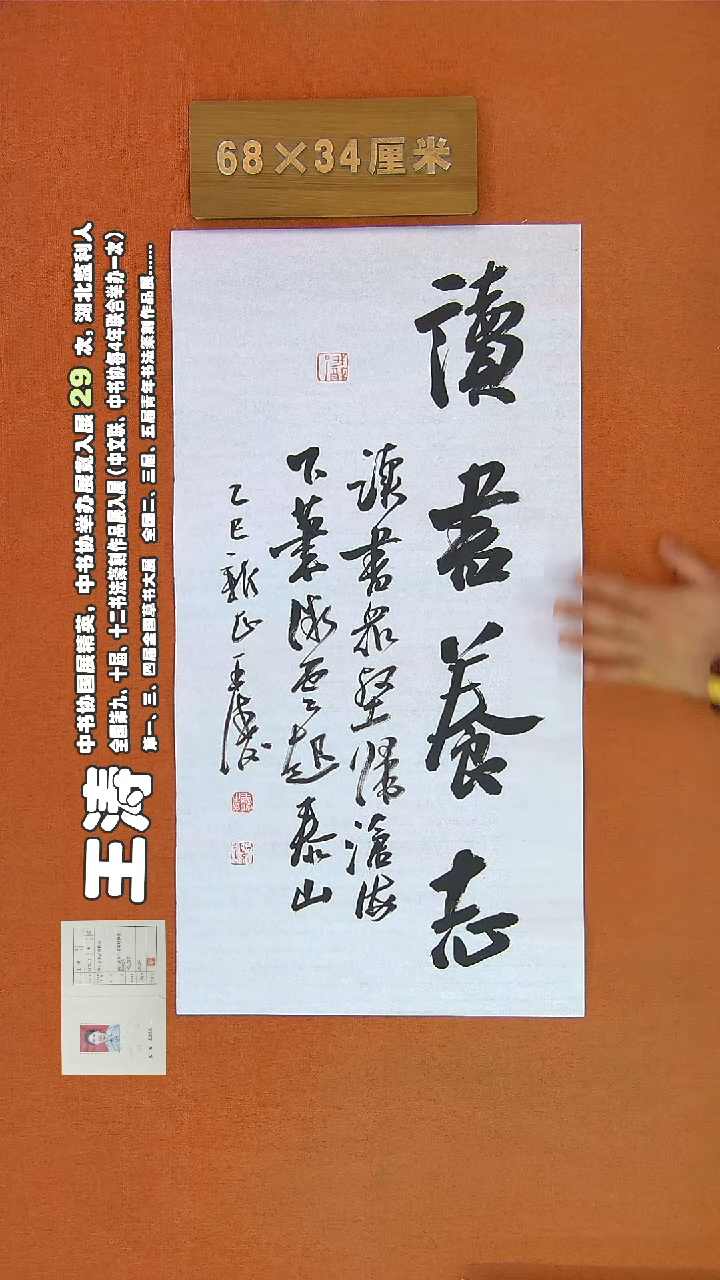 68×34厘米
讀書養志
读書眾壑歸滄海
下筆微雲起泰山
乙巳新正王涛
王涛
中书协国展精英,中书协举办展赛入展 29 次,湖北监利人
全国第九、十届、十二书法篆刻作品展入展(中文联、中书协每4年联合举办一次)
第一、三、四届全国草书大展 全国二、三届、五届青年书法篆刻作品展……